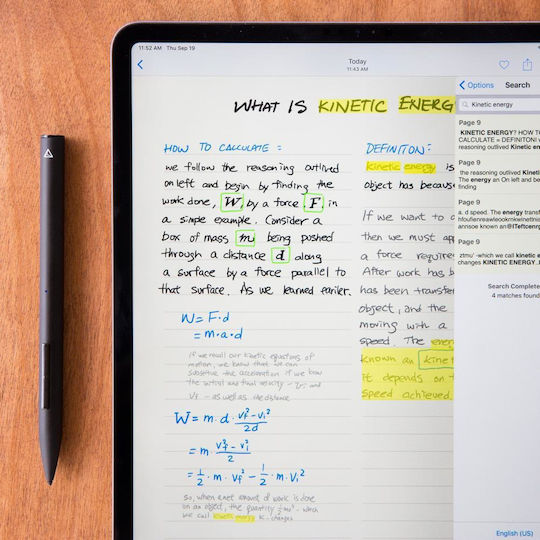 11:52 AM Thu Sep 19
Today
11:43 AM
WHAT IS KINETIC ENERG
HOW TO CALCULATE =
we follow the reasoning outlined
on left and begin by finding the
work done, W, by a force F in
a simple example. Consider a
box of mass m being pushed
through a distance d along
a surface by a force parallel to
that surface. As we learned earlier.
W = F·d
= m·a·d
if we recall our kinetic equations of
motion, we know that we can
substitute the acceleration if we know
the initial and final velocity - vi and
Vf - as well as the distance
W = m·d·vf²-vi²/2d
= m·vf²-vi²/2
= 1/2·m·vf² - 1/2·m·vi²
so, when a net amount of work is done
on an object, the quantity 1/2mv² - which
we call kinetic energy K - changes
DEFINITON:
kinetic energy is
object has becaus
If we want to
then we must ap
a force require
After work has b
has been transfer
object, and the
moving with a
speed. The ener
known an kine
it depends on t
speed achieved.
Options Search
Kinetic energy
Page 9
KINETIC ENERGY? HOW T
CALCULATE = DEFINITON!
reasoning outlived Kinetic en
Page 9
reasoning outlived Kineti
The energy an On left and be
finding
Page 9
a. d speed. The energy transf
annsoe known an
Page 9
ztmu' -which we call kinetic e
changes KINETIC ENERGY
Search Complete
4 matches found
English (US)